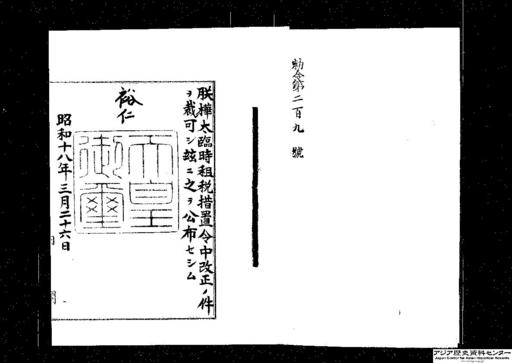 勅令第二百九號
朕樺太臨時租税措置令中改正ノ件
ヲ裁可シ玆ニ之ヲ公布セシム
裕仁
天皇
御璽
昭和十八年三月二十六日
アジア歴史資料センター
Japan Center for Asian Historical Records